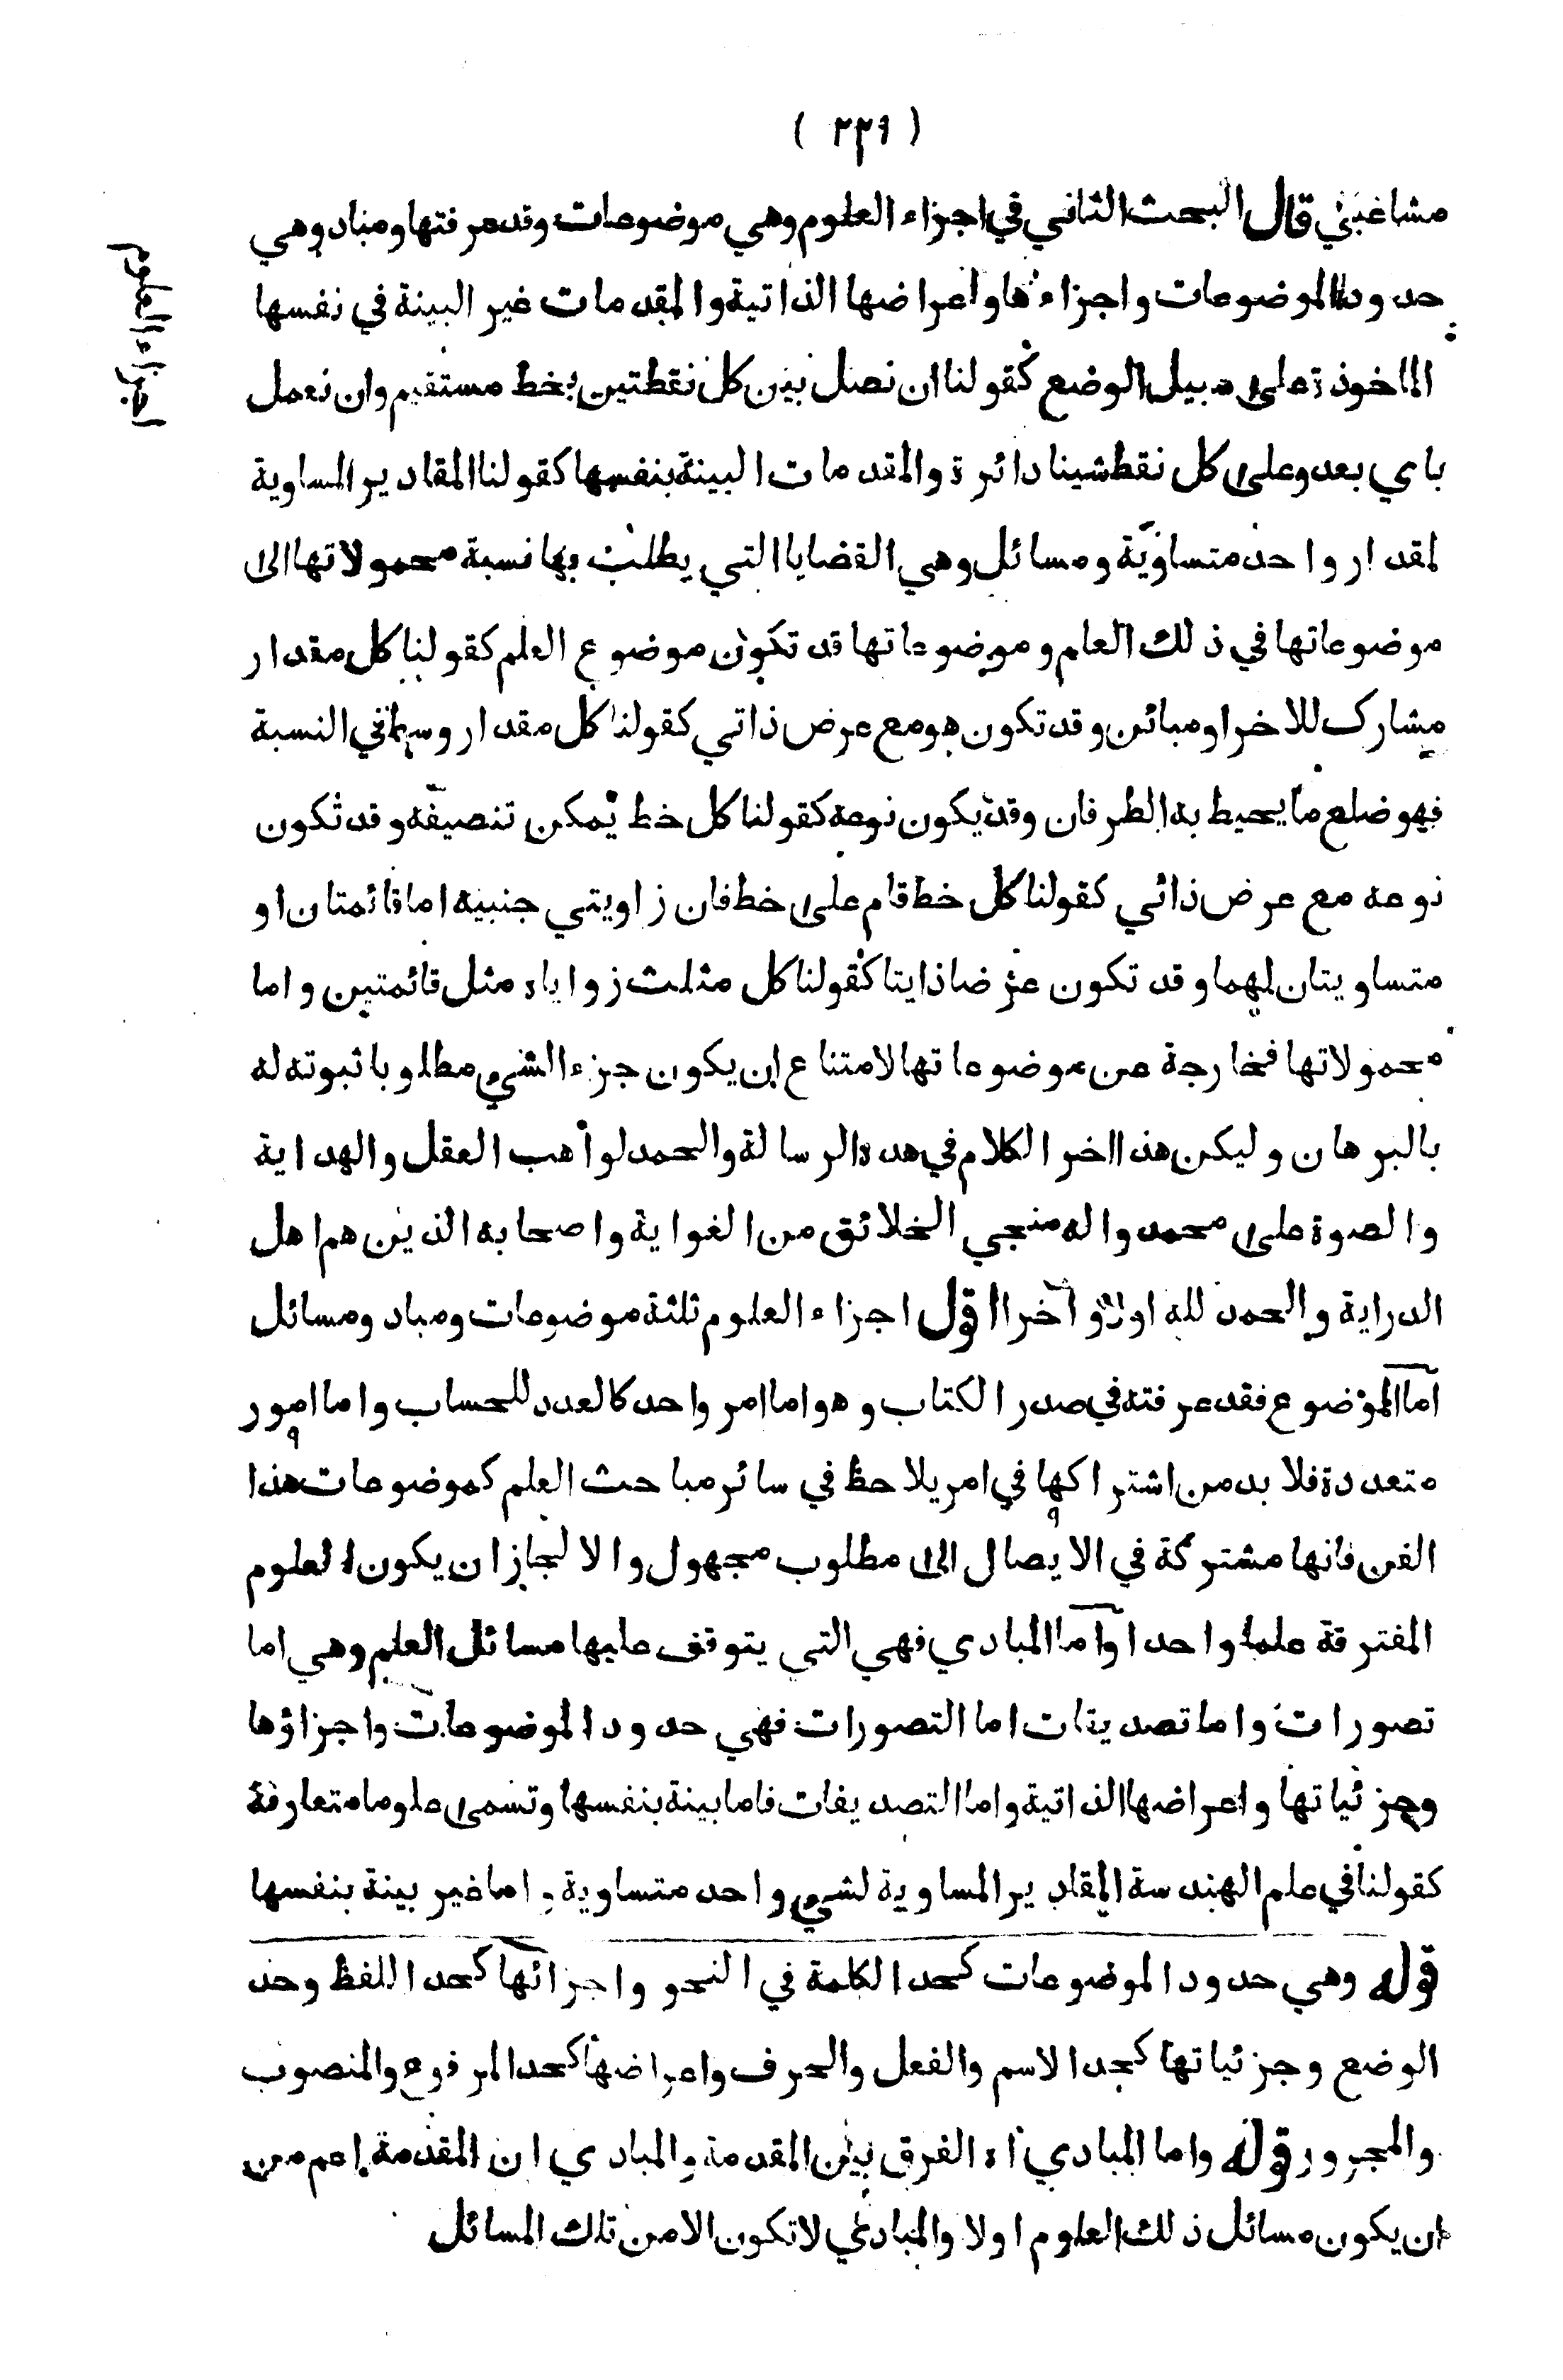 ( ٢٣٩ )
مشاغبي قال البحث الثاني في اجزاء العلوم وهي موضوعات وقد عرفتها ومباد وهي
حدود الموضوعات واجزاءها واعراضها الذاتية والمقدمات غير البينة في نفسها
الماخوذة على سبيل الوضع كقولنا ان نصل بين كل نقطتين بخط مستقيم وان نعمل
باي بعد وعلى كل نقط شينا دائرة والمقدمات البينة بنفسها كقولنا المقادير المساوية
لمقدار واحد متساوية ومسائل وهي القضايا التي يطلب بها نسبة محمولاتها الى
موضوعاتها في ذلك العلم وموضوعاتها قد تكون موضوع العلم كقولنا كل مقدار
مشارك للاخر او مبائن وقد تكون هو مع عرض ذاتي كقولنا كل مقدار وسط في النسبة
فهو ضلع ما يحيط به الطرفان وقد يكون نوعه كقولنا كل خط يمكن تنصيفه وقد تكون
نوعه مع عرض ذاتي كقولنا كل خط قام على خط فان زاويتي جنبيه اما قائمتان او
متساويتان لهما وقد تكون عرضا ذايتا كقولنا كل مثلث زواياه مثل قائمتين واما
محمولاتها فخارجة عن موضوعاتها لامتناع ان يكون جزء الشيء مطلوبا ثبوته له
بالبرهان وليكن هذا اخر الكلام في هده الرسالة والحمد لواهب العقل والهداية
والصوة على محمد واله منجي الخلائق من الغواية واصحابه الذين هم اهل
الدراية والحمد لله اولا و آخرا اقول اجزاء العلوم ثلثة موضوعات ومباد ومسائل
اما الموضوع فقد عرفته في صدر الكتاب وهو اما امر واحد كالعدد للحساب واما امور
متعددة فلا بد من اشتراكها في امر يلاحظ في سائر مباحث العلم كموضوعات هذا
الفن فانها مشتركة في الايصال الى مطلوب مجهول والا لجاز ان يكون العلوم
المفترقة علما واحدا واما المبادي فهي التي يتوقف عليها مسائل العلم وهي اما
تصورات واما تصديقات اما التصورات فهي حدود الموضوعات واجزاؤها
وجزئياتها واعراضها الذاتية واما التصديقات فاما بينة بنفسها وتسمى علوما متعارفة
كقولنا في علم الهندسة المقادير المساوية لشيء واحد متساوية واما غير بينة بنفسها
قوله وهي حدود الموضوعات كحد الكلمة في النحو واجزائها كحد اللفظ وحد
الوضع وجزئياتها كحد الاسم والفعل والحرف واعراضها كحد المرفوع والمنصوب
والمجرور قوله واما المبادي اه الفرق بين المقدمة والمبادي ان المقدمة اعم من
ان يكون مسائل ذلك العلوم اولا والمبادي لا تكون الا من تلك المسائل
اجزاء العلوم